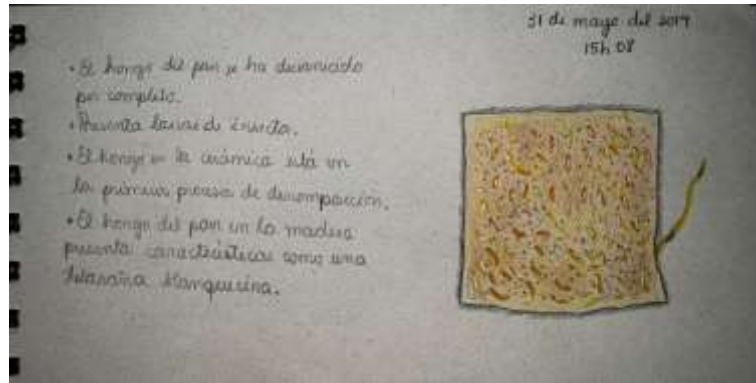 31 de mayo del 2019
15h 08
• El hongo del pan se ha desvanecido
por completo.
• Presenta larvas de insecto.
• El hongo en la cerámica está en
los primeros procesos de descomposición.
• El hongo del pan en la madera
presenta características como una
telaraña blanquecina.